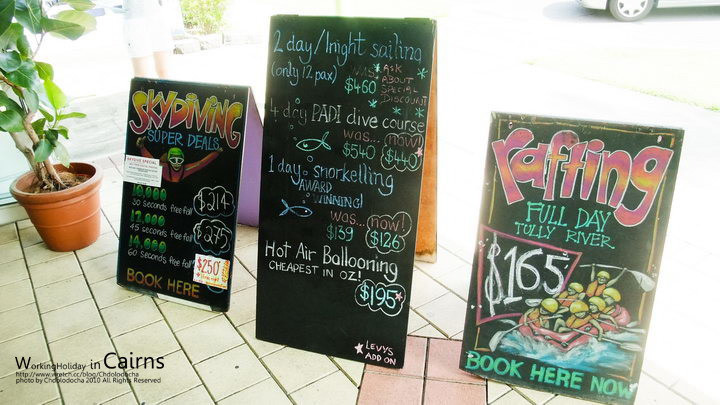 SKYDIVING
SUPER DEALS
10,000
30 seconds free fall
$214
12,000
45 seconds free fall
$275
14,000
60 seconds free fall
$250
BOOK HERE
2 day/1night sailing
(only 12 pax)
was
$460
ASK
ABOUT
SPECIAL
DISCOUNT
4 day PADI dive course
was... now!
$540 $440
1 day snorkelling
AWARD
WINNING!
was... now!
$139 $126
Hot Air Ballooning
CHEAPEST IN OZ!
$195
* LEVYS
ADD ON
rafting
FULL DAY
TULLY RIVER
$165
BOOK HERE NOW
WorkingHoliday in Cairns
http://www.wretch.cc/blog/Chdolodocha
photo by Chdolodocha 2010 All Rights Reserved